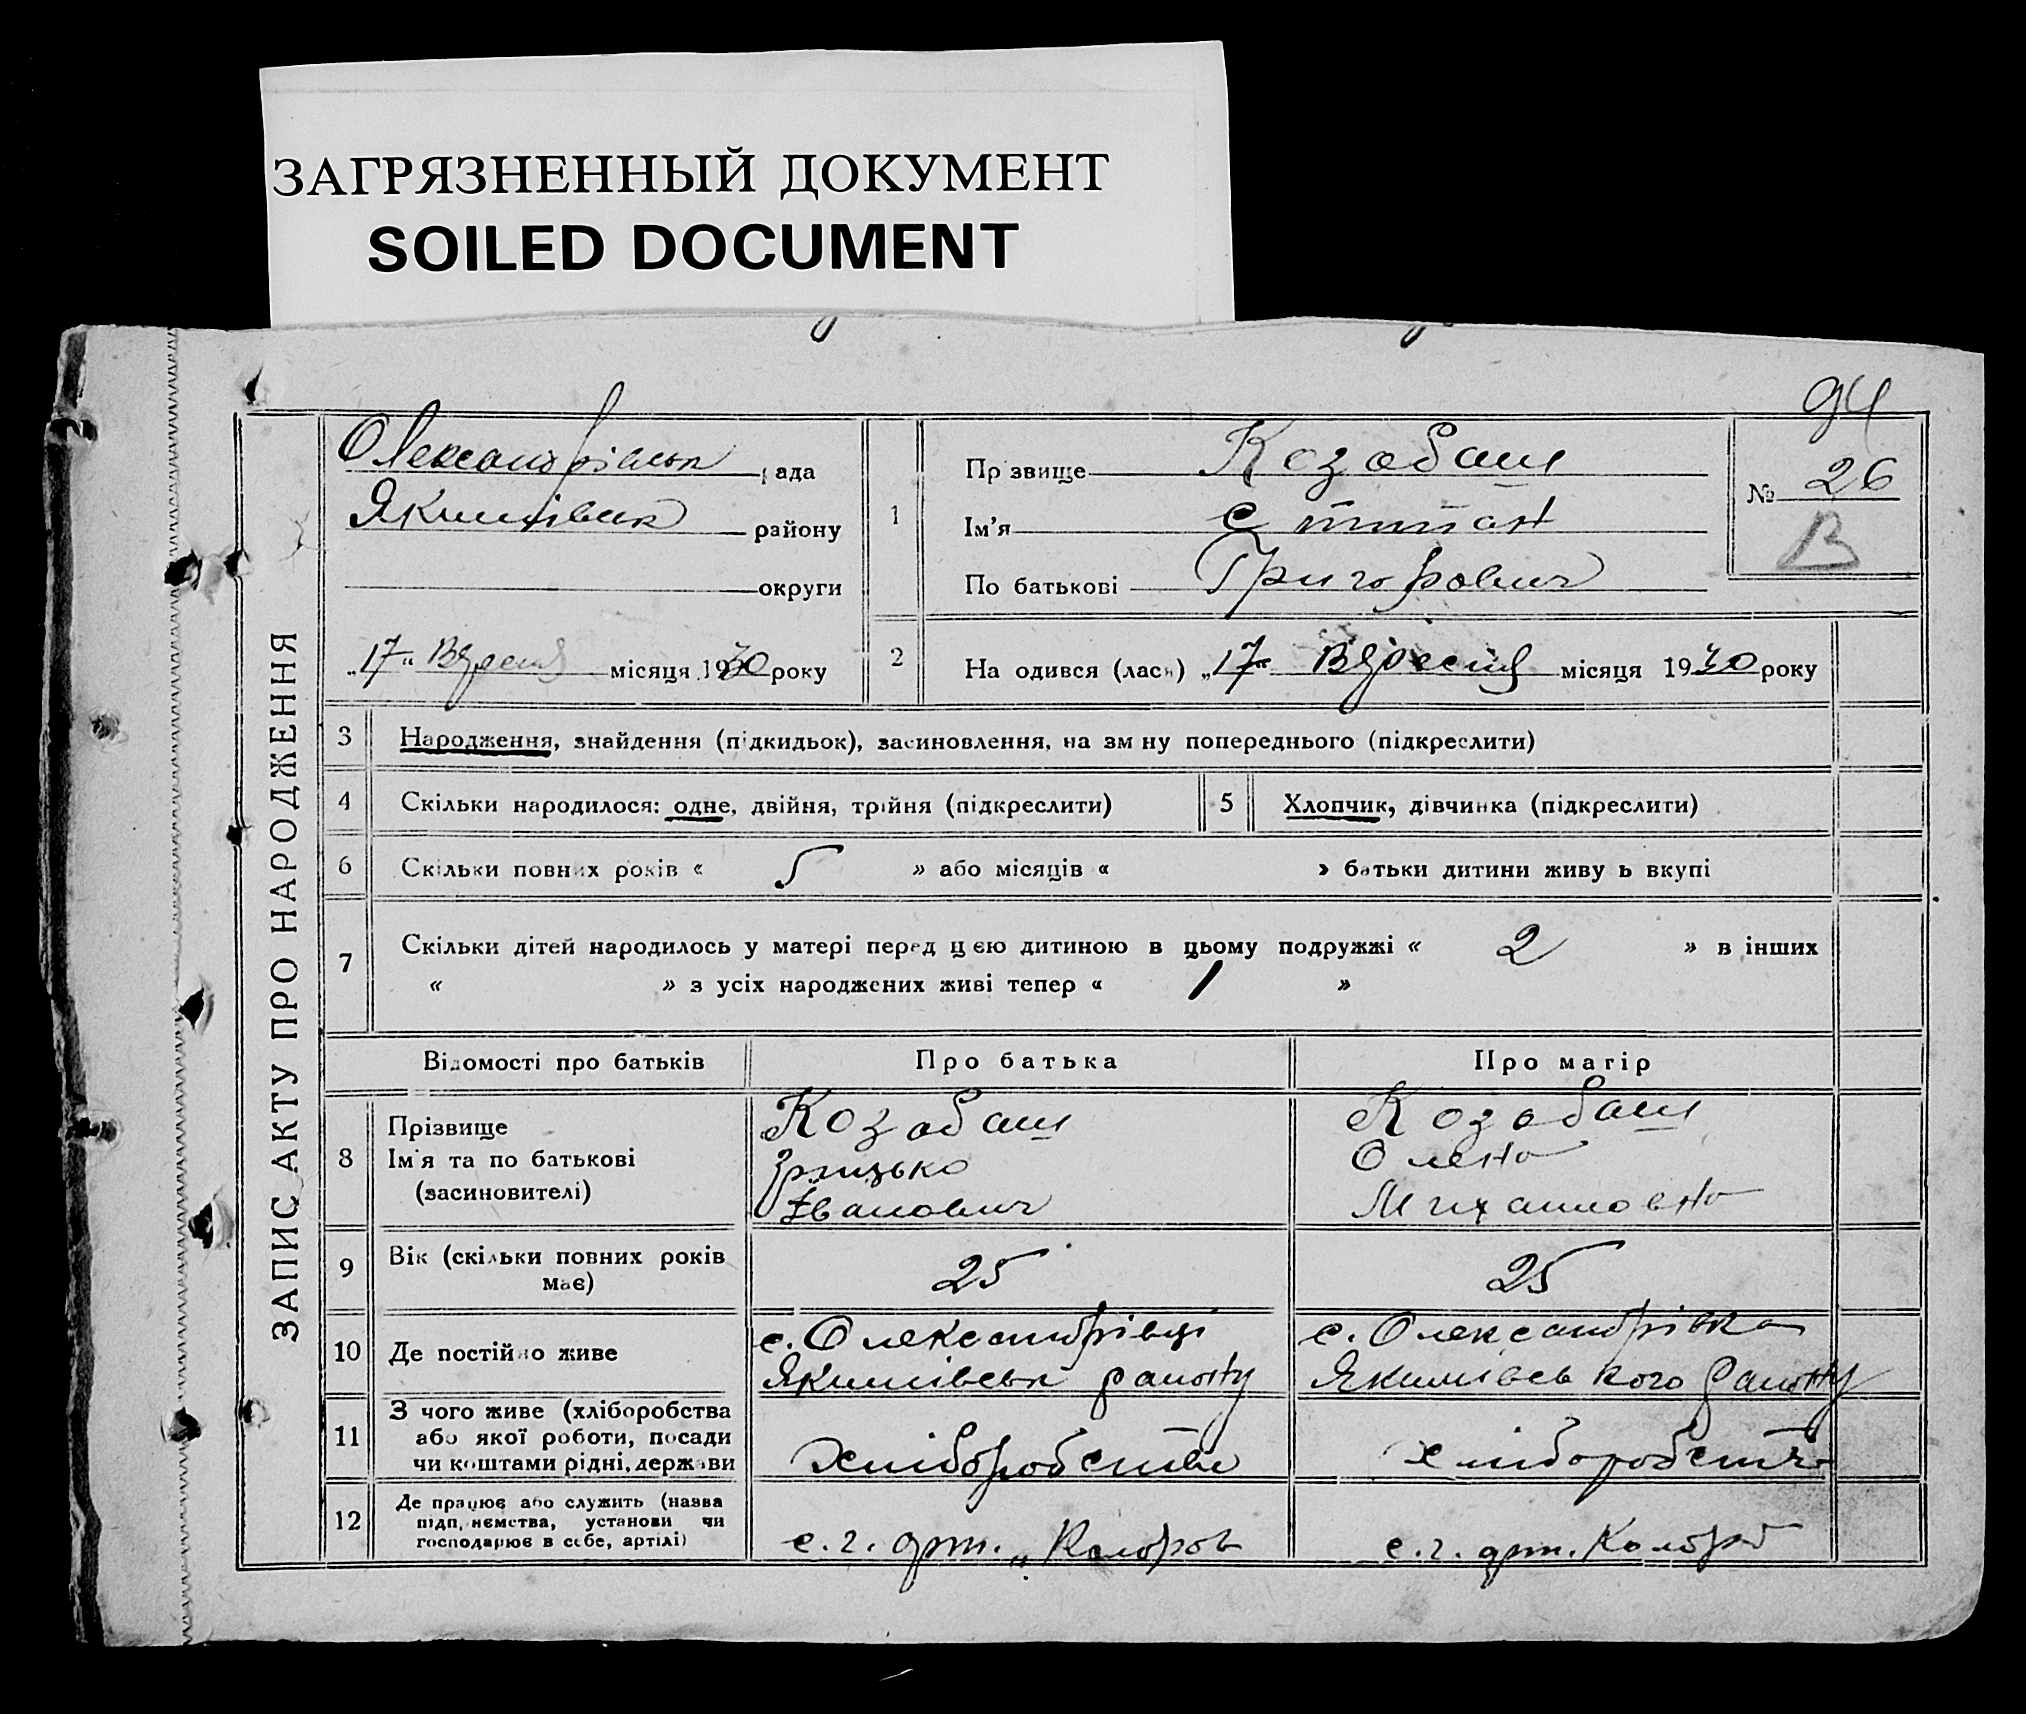 ЗАГРЯЗНЕННЫЙ ДОКУМЕНТ
SOILED DOCUMENT
94
ЗАПИС АКТУ ПРО НАРОДЖЕННЯ
Олександрівськ рада
Якимівськ району
округи
„17“ Вересня місяця 1930 року
1
Прізвище Козабаш
Ім'я Стипан
По батькові Григорович
№ 26
В
2
На одився (лась) „17“ Вересня місяця 1930 року
3 Народження, знайдення (підкидьок), засиновлення, на зм ну попереднього (підкреслити)
4 Скільки народилося: одне, двійня, трійня (підкреслити)
5 Хлопчик, дівчинка (підкреслити)
6 Скільки повних років « 5 » або місяців « » батьки дитини живу ь вкупі
7 Скільки дітей народилось у матері перед цією дитиною в цьому подружжі « 2 » в інших
« » з усіх народжених живі тепер « 1 »
Відомості про батьків Про батька Про матір
8 Прізвище Козабаш Козабаш
Ім'я та по батькові Грицько Олена
(засиновителі) Іванович Михаиловна
9 Вік (скільки повних років має) 25 25
10 Де постійно живе
с. Олександрівці с. Олександрівка
Якимівськ раиону Якимівського раиону
11 З чого живе (хліборобства
або якої роботи, посади
чи коштами рідні, держави
хліборобства хліборобства
12 Де працює або служить (назва
підп, иємства, установи чи
господарює в себе, артілі)
с. г. арт. с. г. арт.